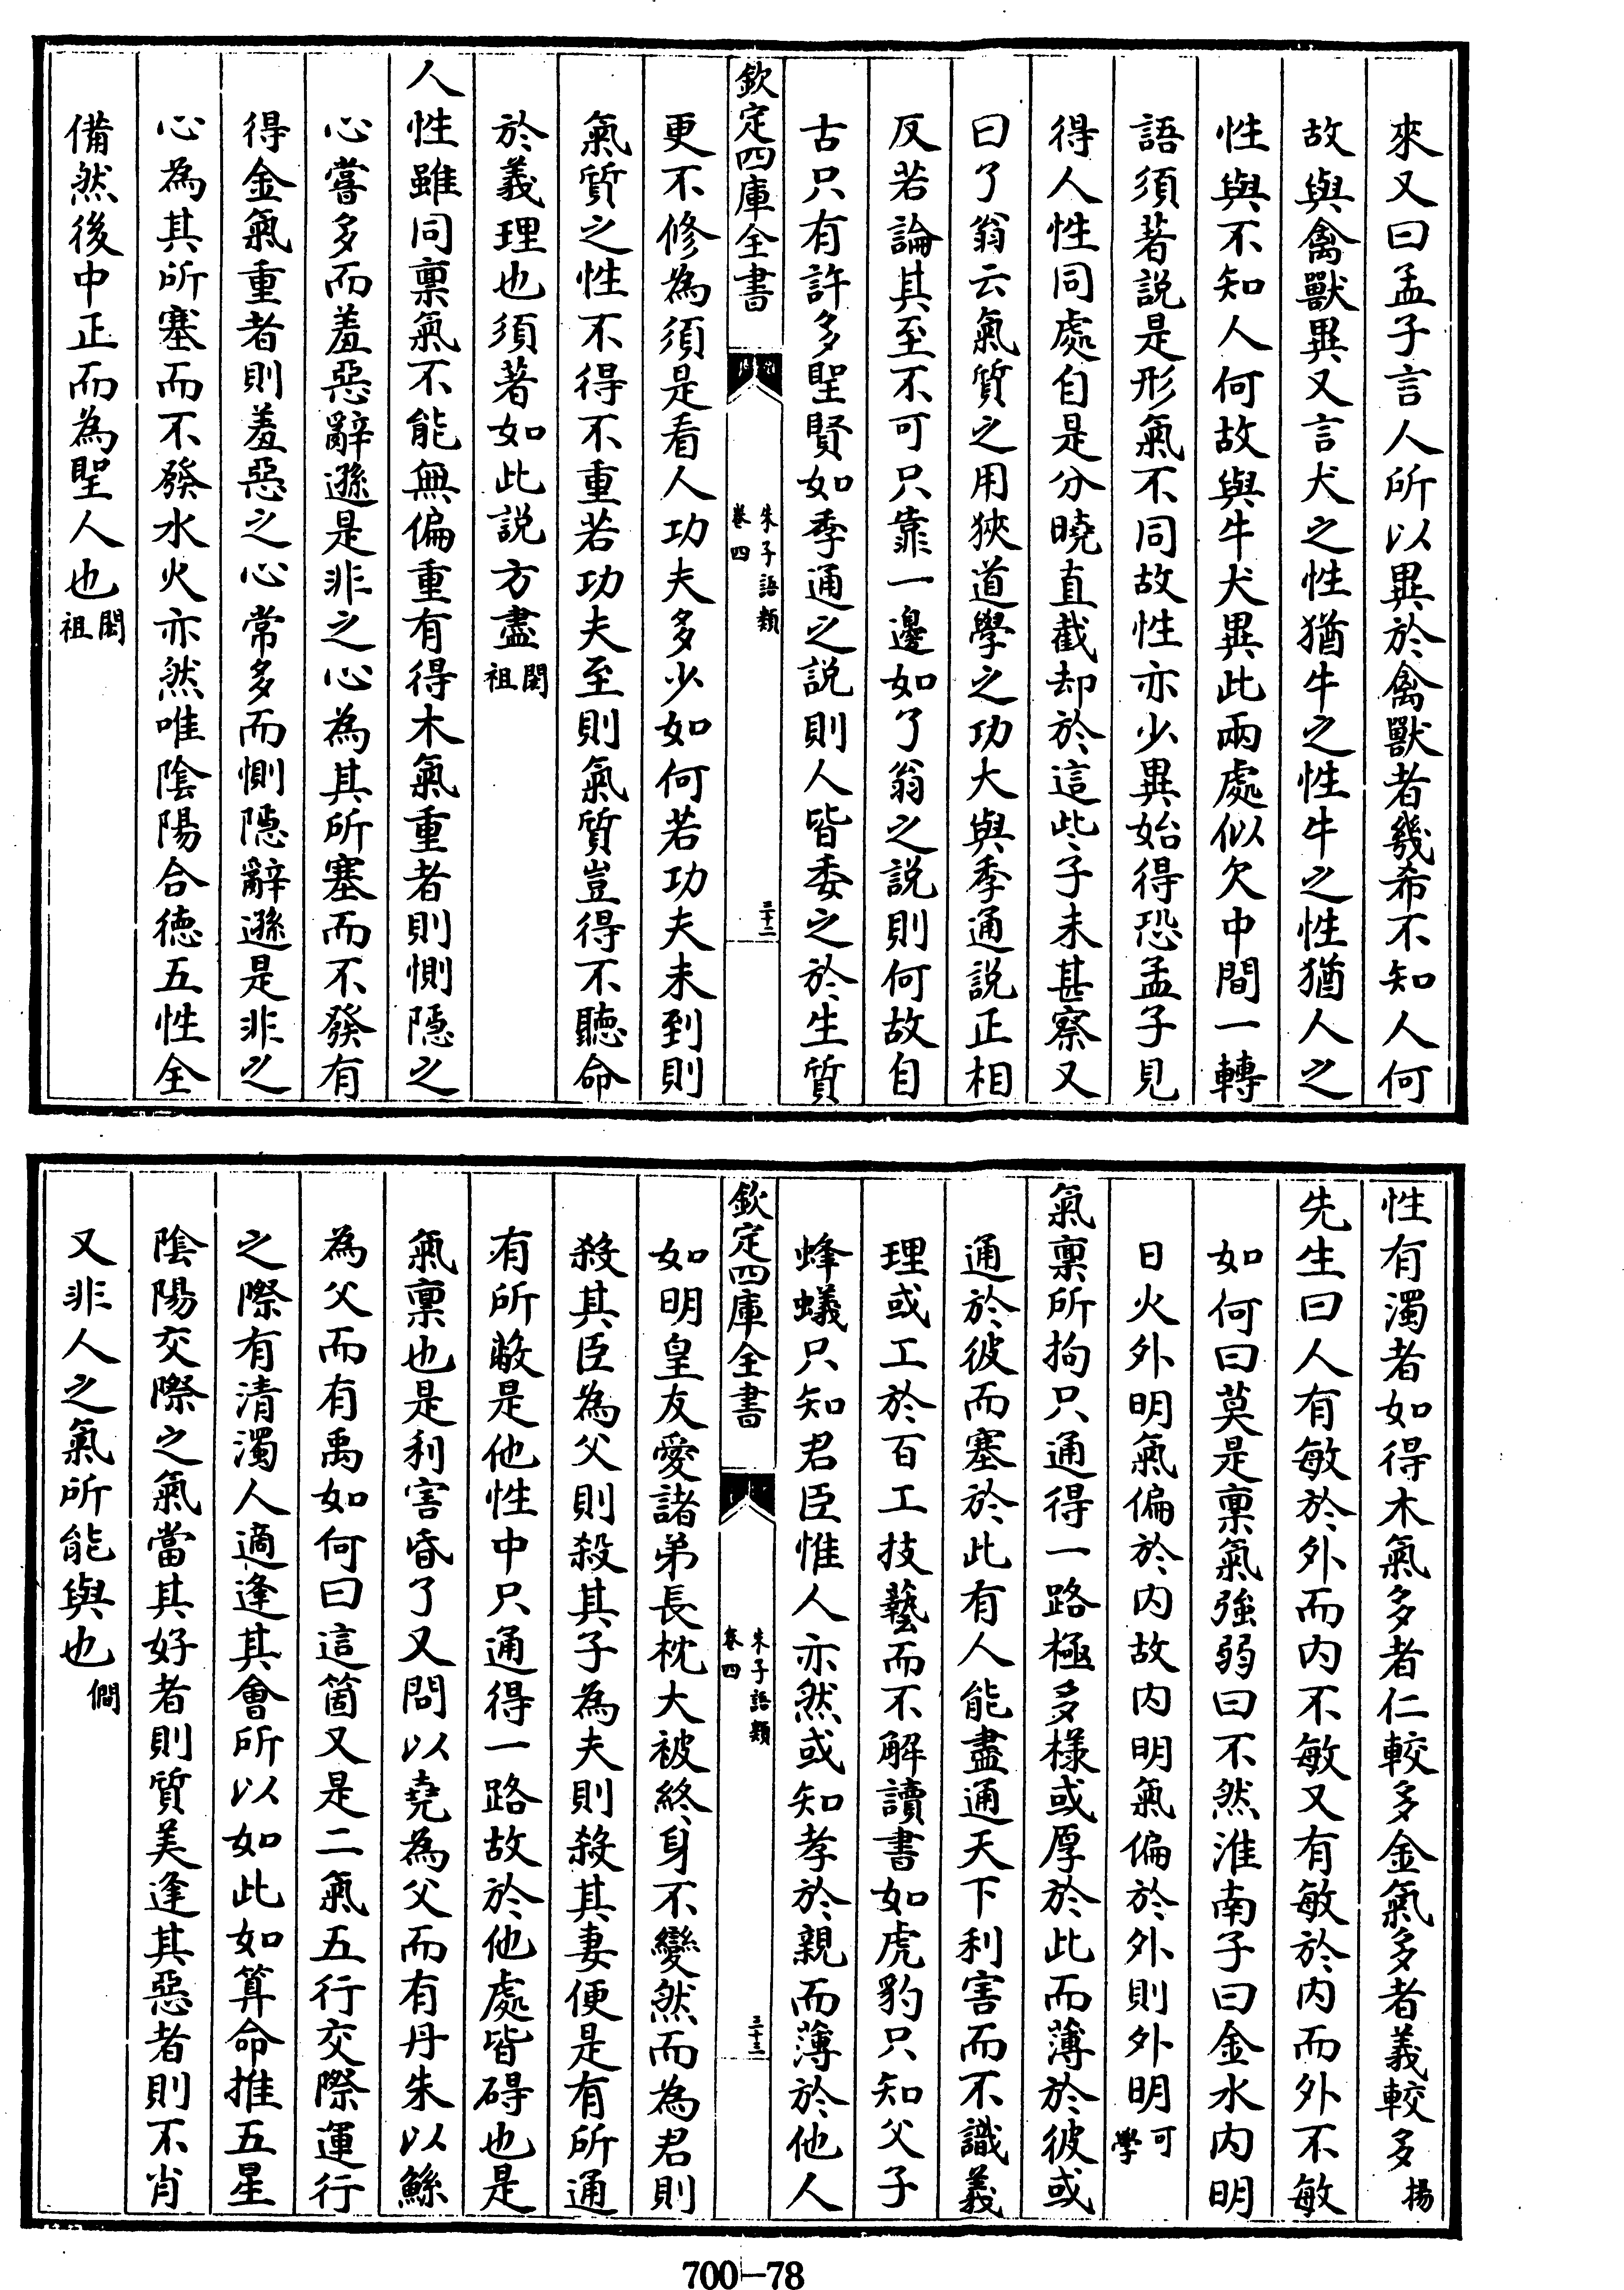 來又曰孟子言人所以異於禽獸者幾希不知人何
故與禽獸異又言犬之性猶牛之性牛之性猶人之
性與不知人何故與牛犬異此兩處似欠中間一轉
語須著説是形氣不同故性亦少異始得恐孟子見
得人性同處自是分曉直截却於這些子未甚察又
曰了翁云氣質之用狹道學之功大與季通説正相
反若論其至不可只靠一邊如了翁之説則何故自
古只有許多聖賢如季通之説則人皆委之於生質
欽定四庫全書
朱子語類
卷四
三十二
更不修為須是看人功夫多少如何若功夫未到則
氣質之性不得不重若功夫至則氣質豈得不聽命
於義理也須著如此説方盡閎祖
人性雖同稟氣不能無偏重有得木氣重者則惻隱之
心嘗多而羞惡辭遜是非之心為其所塞而不發有
得金氣重者則羞惡之心常多而惻隱辭遜是非之
心為其所塞而不發水火亦然唯陰陽合德五性全
備然後中正而為聖人也閎祖
性有濁者如得木氣多者仁較多金氣多者義較多揚
先生曰人有敏於外而内不敏又有敏於内而外不敏
如何曰莫是稟氣強弱曰不然淮南子曰金水内明
日火外明氣偏於内故内明氣偏於外則外明可學
氣稟所拘只通得一路極多樣或厚於此而薄於彼或
通於彼而塞於此有人能盡通天下利害而不識義
理或工於百工技藝而不解讀書如虎豹只知父子
蜂蟻只知君臣惟人亦然或知孝於親而薄於他人
欽定四庫全書
朱子語類
卷四
三十三
如明皇友愛諸弟長枕大被終身不變然而為君則
殺其臣為父則殺其子為夫則殺其妻便是有所通
有所蔽是他性中只通得一路故於他處皆碍也是
氣稟也是利害昏了又問以堯為父而有丹朱以鯀
為父而有禹如何曰這箇又是二氣五行交際運行
之際有清濁人適逢其會所以如此如算命推五星
陰陽交際之氣當其好者則質美逢其惡者則不肖
又非人之氣所能與也僩
700-78